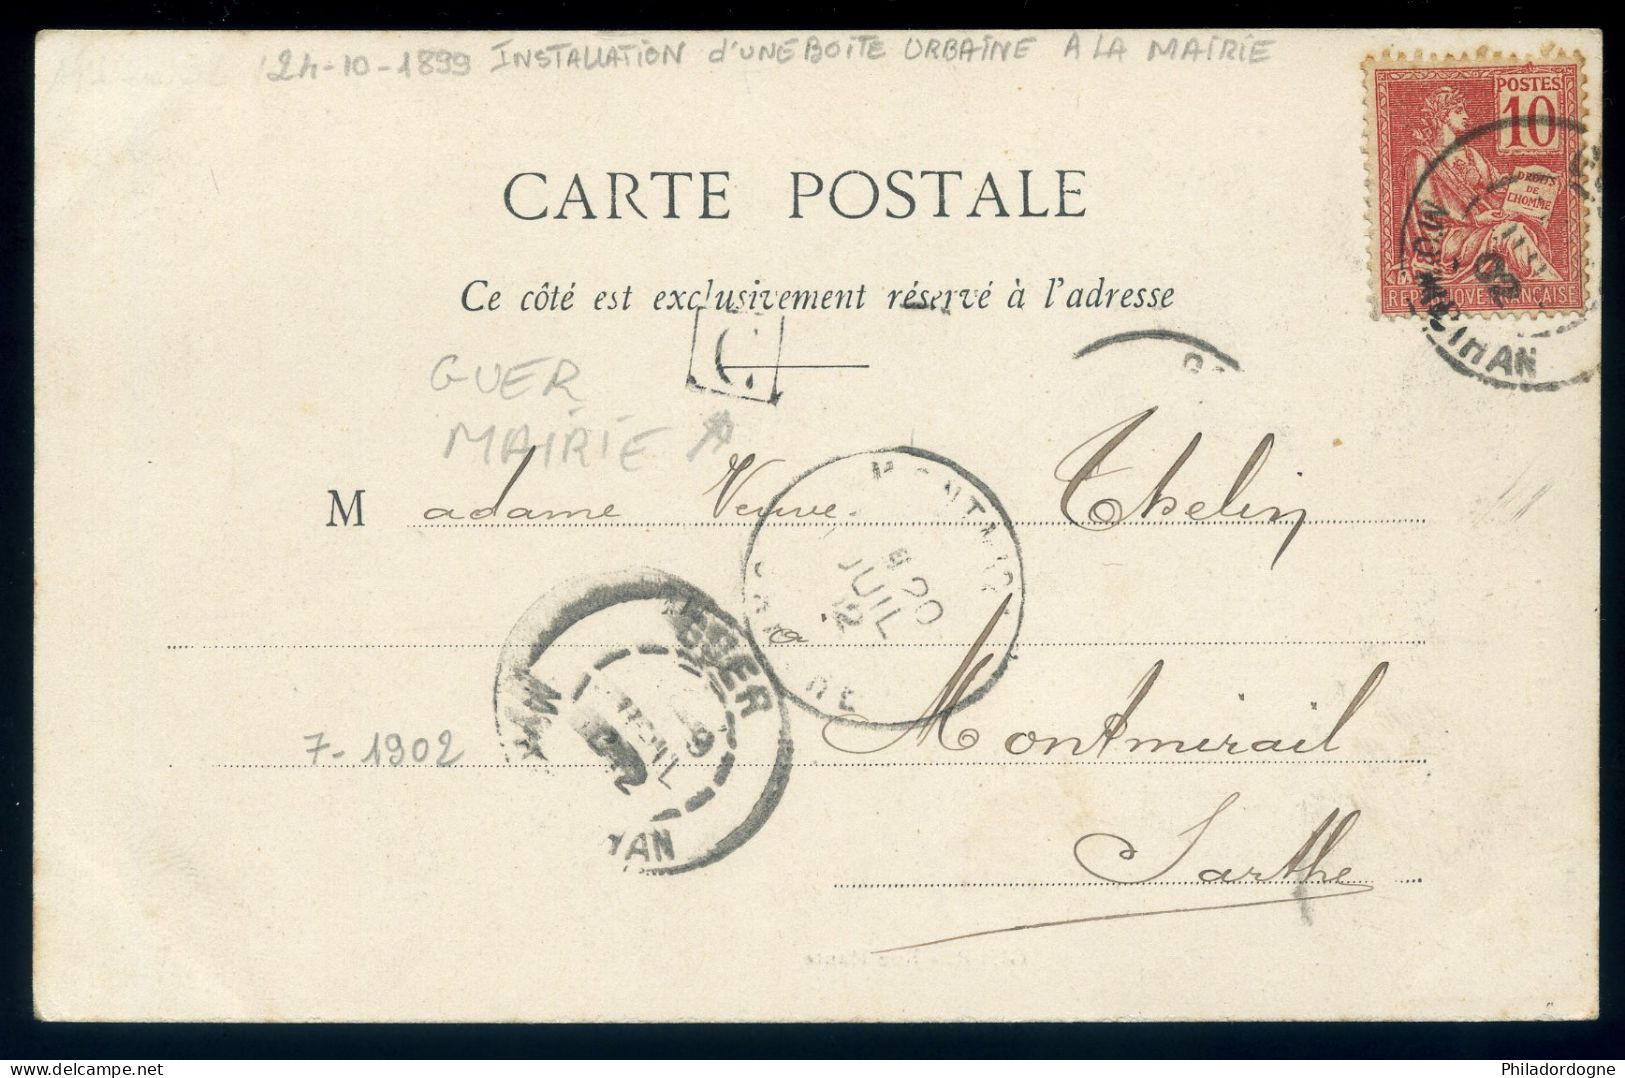 24-10-1899 INSTALLATION d'UNE BOITE URBAINE A LA MAIRIE
POSTES
10
DROITS
DE
L'HOMME
REPUBLIQUE FRANÇAISE
MORBIHAN
02
CARTE POSTALE
Ce côté est exclusivement réservé à l'adresse
GUER
MAIRIE
Madame Veuve Thelin
8 20
JUIL
à
Montmirail
7-1902
Sarthe
Philadordogne